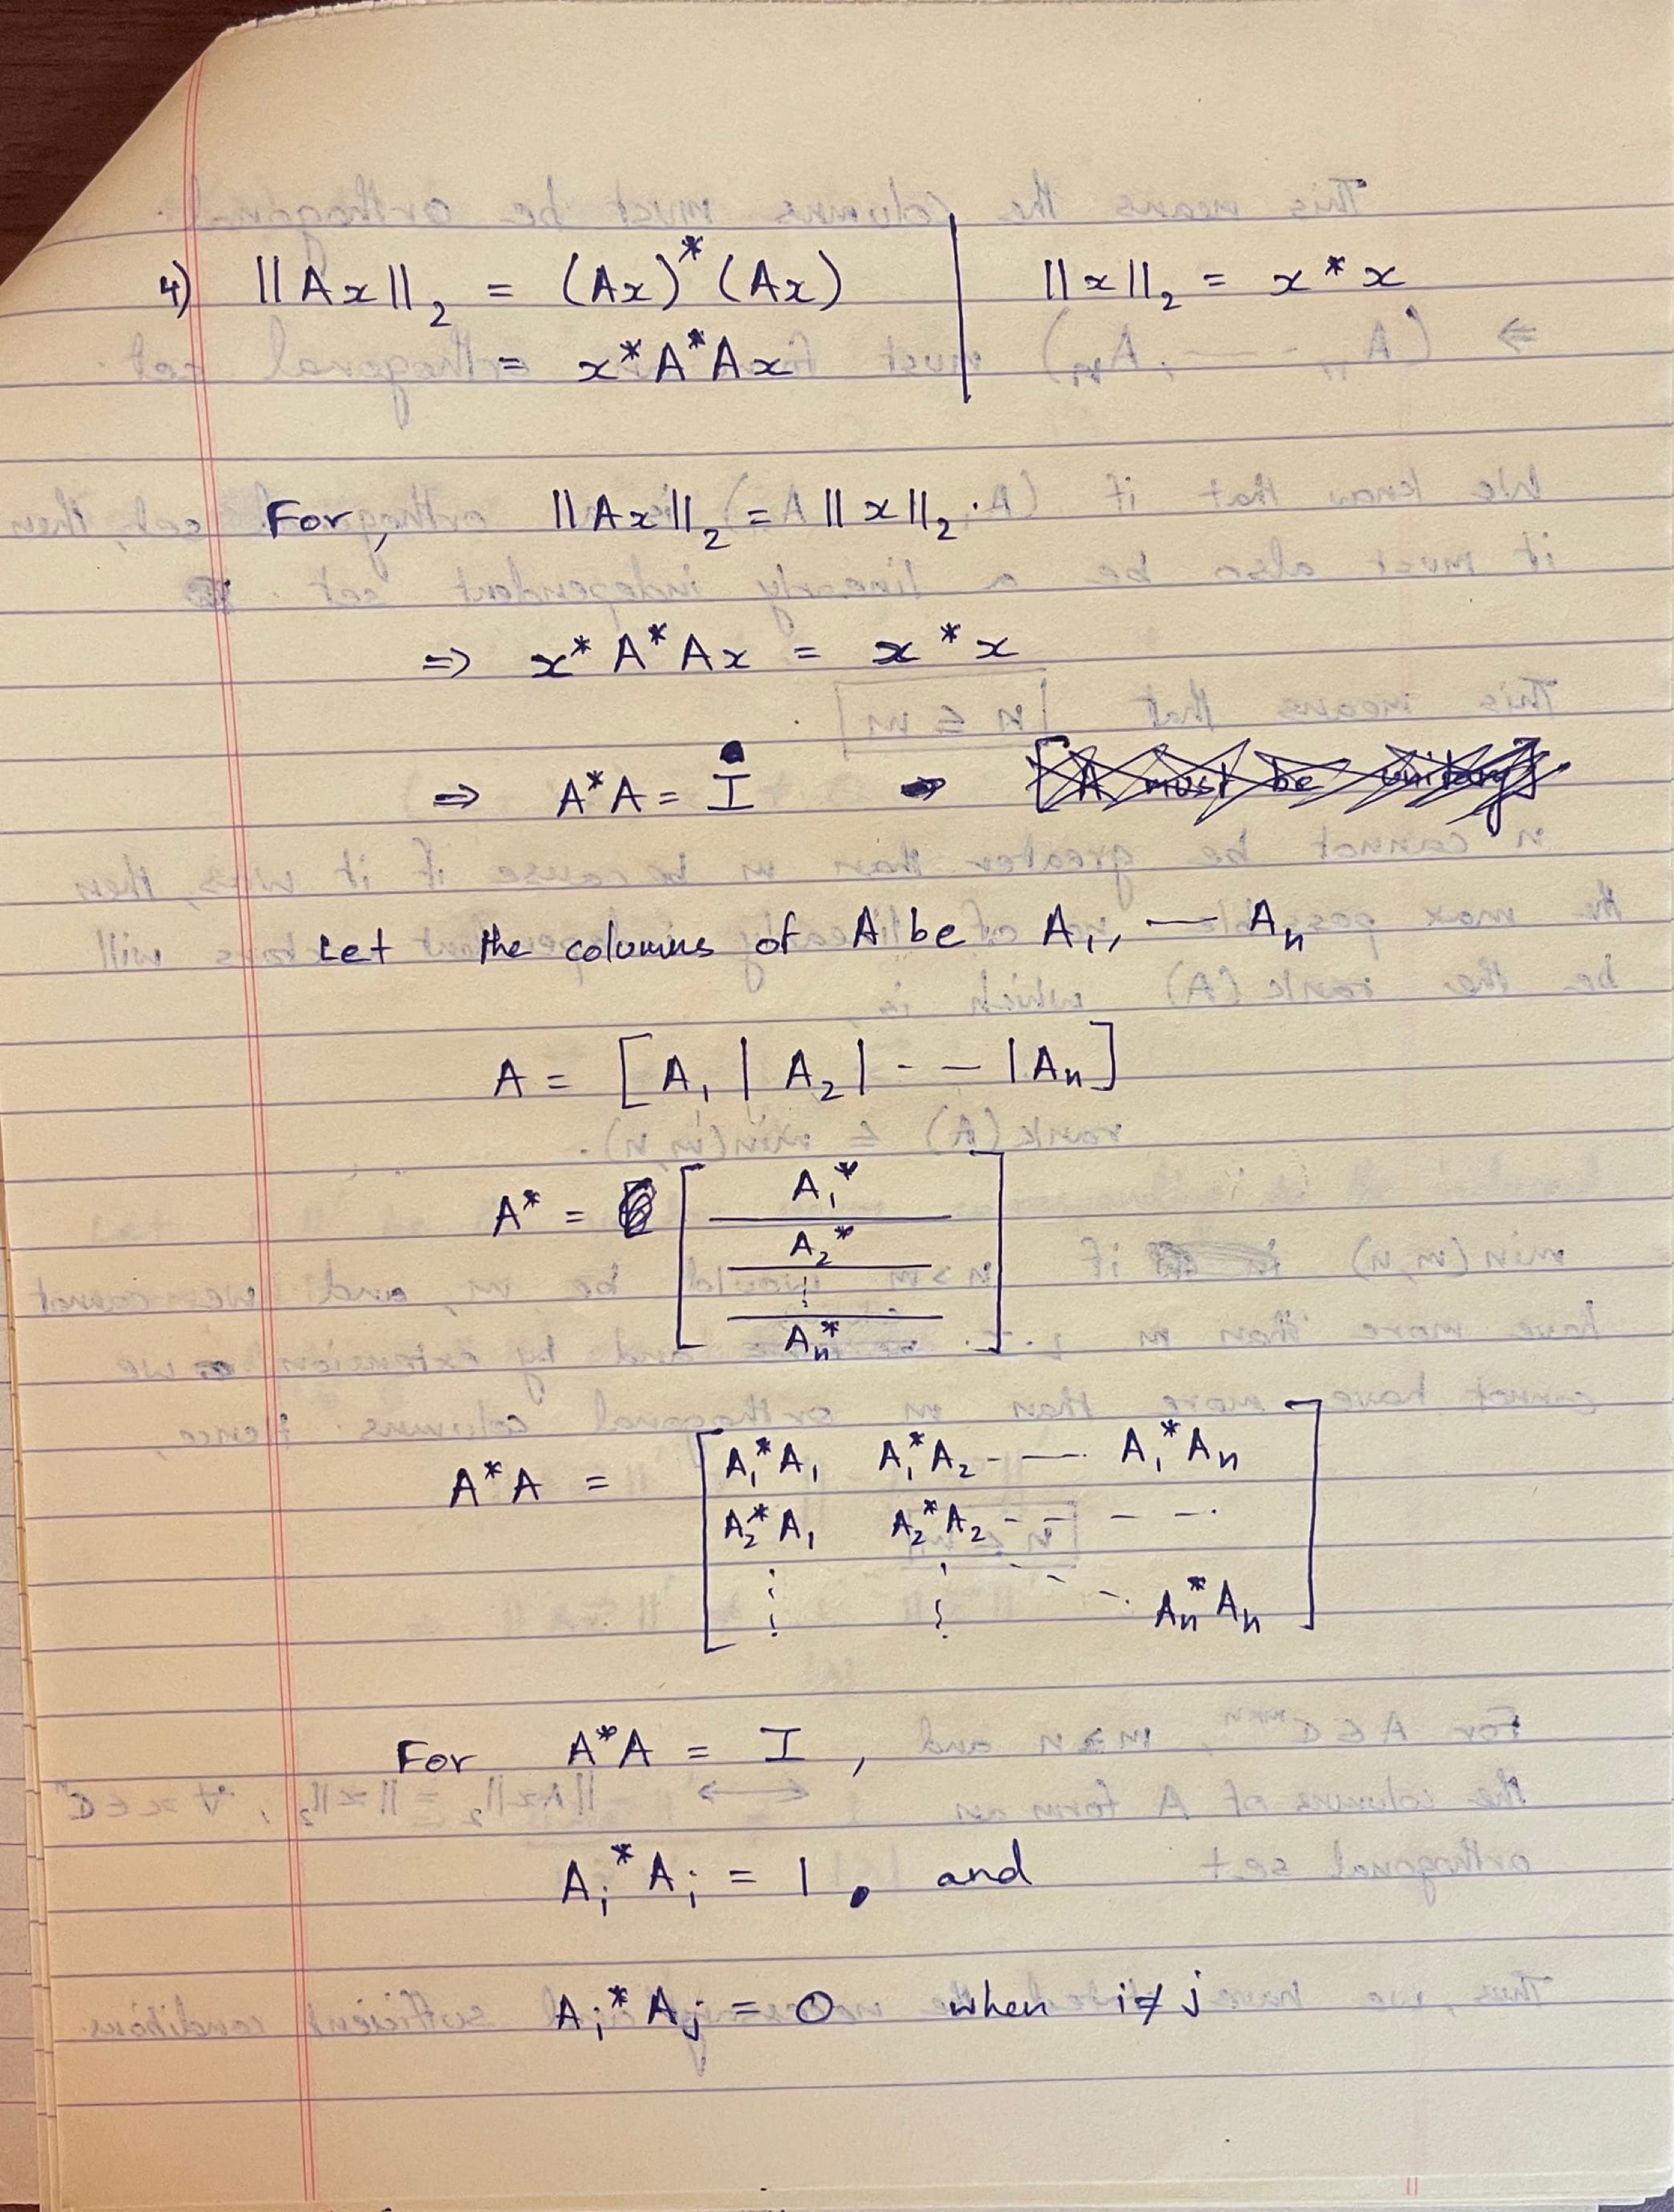 4) ||Ax||₂ = (Ax)* (Ax) | ||x||₂ = x* x
= x* A* A x
For, ||Ax||₂ = ||x||₂.
⇒ x* A* A x = x* x
⇒ A* A = I ⇒ [A must be unitary]
Let the columns of A be A₁, — Aₙ
A = [A₁ | A₂ | - - | Aₙ]
A* = [ A₁*
A₂*
⋮
Aₙ* ]
A* A = [ A₁* A₁ A₁* A₂ - - — A₁* Aₙ
A₂* A₁ A₂* A₂ - - - - -
⋮ ⋮ ⋱ Aₙ* Aₙ ]
For A* A = I ,
Aᵢ* Aᵢ = 1, and
Aᵢ* Aⱼ = 0 when i ≠ j